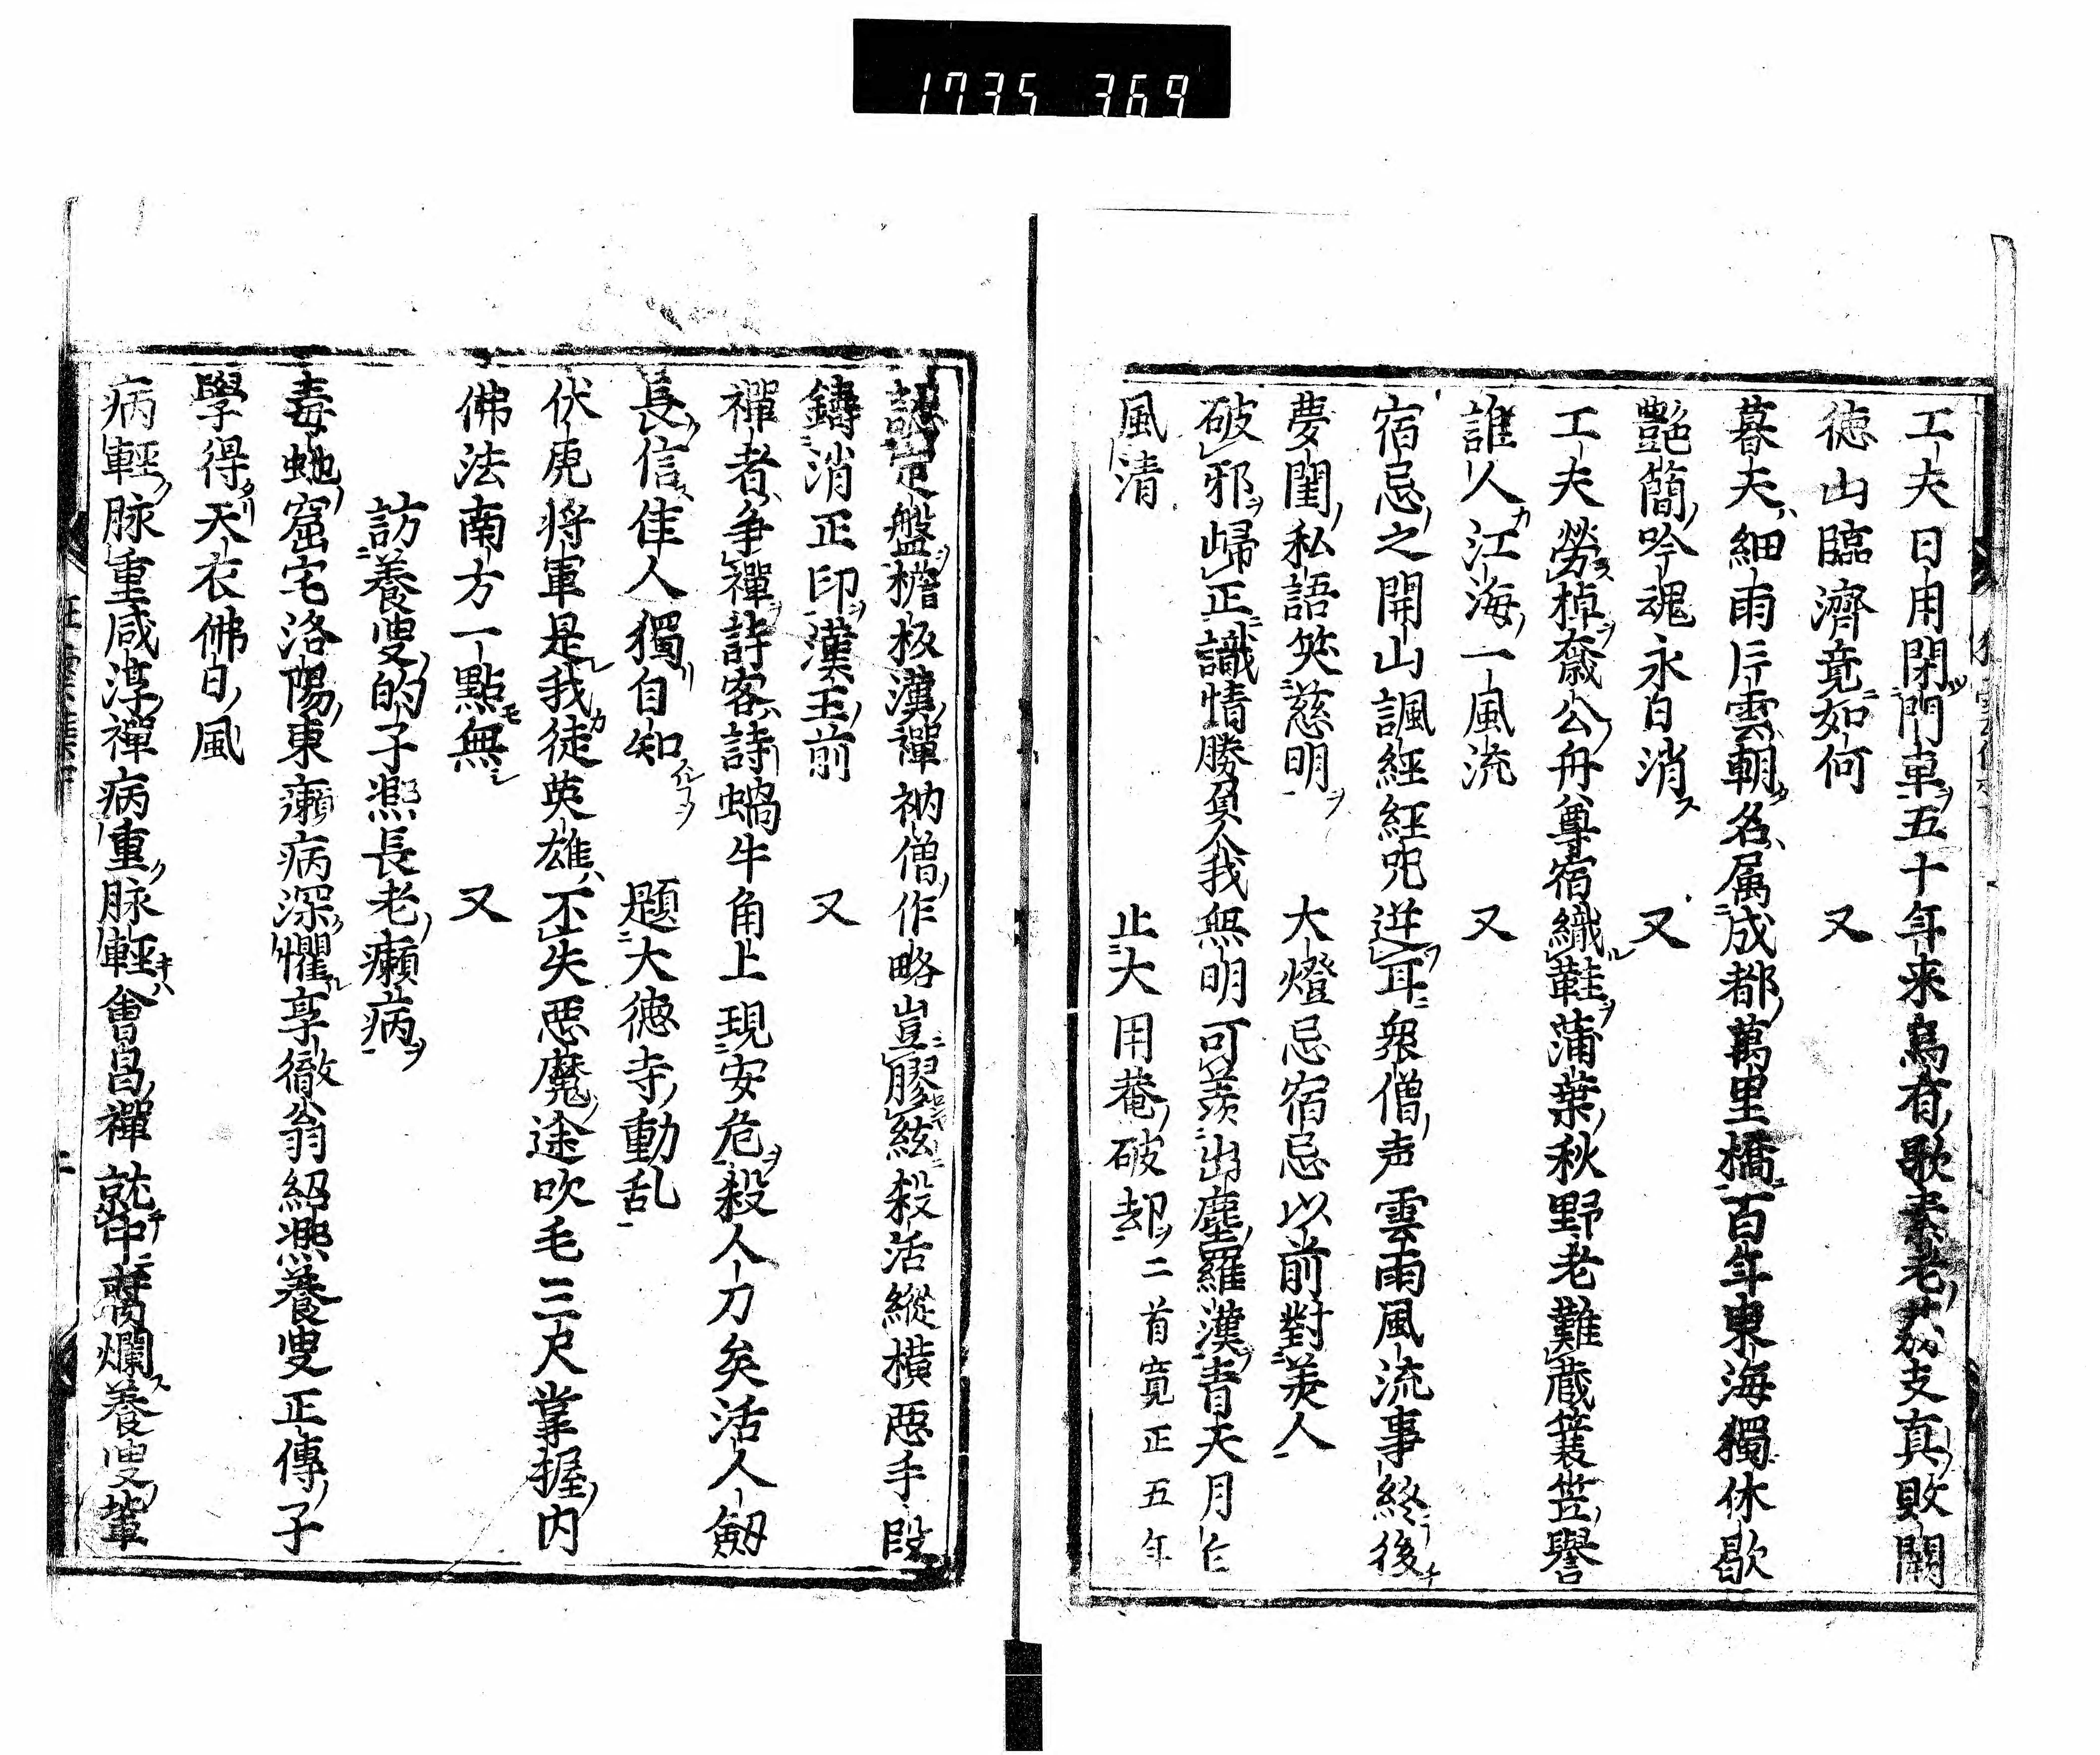 1735 369
工夫日用閉門車五十年来烏有歌秦老茘支真敗闕
徳山臨濟竟如何 又
暮天細雨片雲朝名属成都萬里橋百年東海獨休歇
艶簡吟魂永日消 又
工夫勞棹齋公舟尊宿織鞋蒲葉秋野老難蔵蓑笠譽
誰人江海一風流 又
宿忌之開山諷經經咒逆耳衆僧声雲雨風流事終後
夢閨私語笑慈明 大燈忌宿忌以前對美人
破邪歸正識情勝負人我無明可羨出塵羅漢青天月仁
風清 止大用菴破却二首寛正五年
認定盤檐板漢禪衲僧作略豈膠絃殺活縦横悪手段
鑄消正印漢王前 又
禪者争禪詩客詩蝸牛角上現安危殺人刀矣活人劔
長信佳人獨自知 題大徳寺動乱
伏虎将軍是我徒英雄不失悪魔途吹毛三尺掌握内
佛法南方一點無 又
訪養叟的子凞長老癩病
毒蛇窟宅洛陽東癩病深懼享徹翁紹凞養叟正傳子
學得天衣佛日風
病輕脉重咸淳禪病重脉輕會昌禪就中腐爛養叟輩